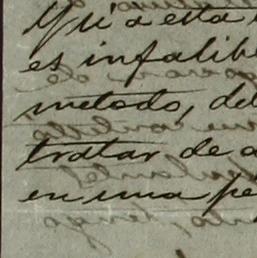 Qui a esta
es infalib
metodo, de
tratar de a
en una pe